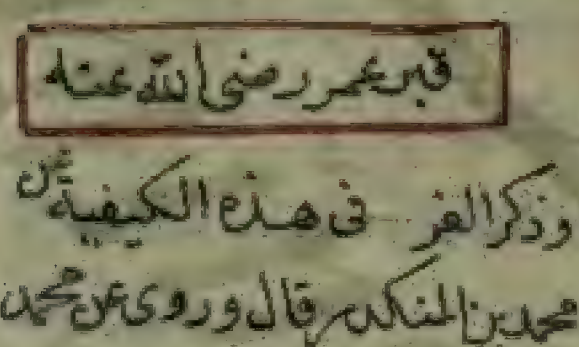 قبر عمر رضى الله عنه
وذكر العز فى هذه الكيفية عن
محمد بن المنكدر قال وروى عن محمد